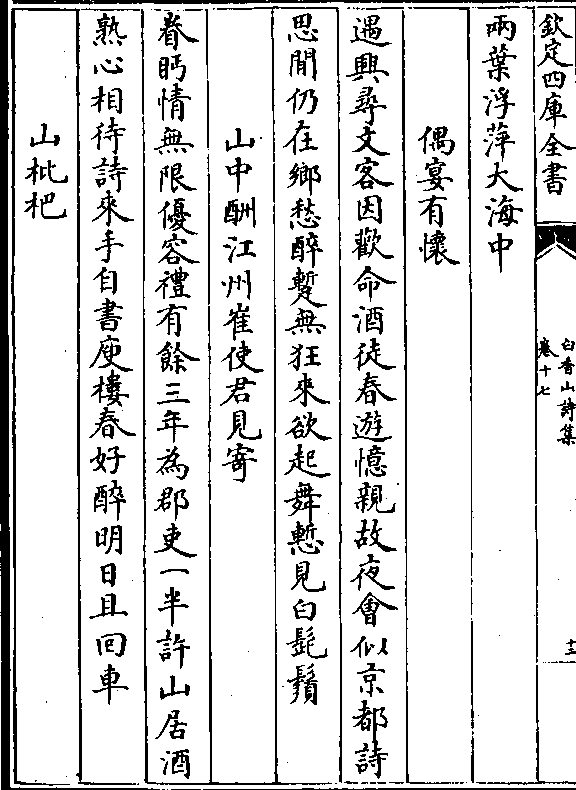 欽定四庫全書
白香山詩集
卷十七
十三
兩葉浮萍大海中
偶宴有懷
遇興尋文客因歡命酒徒春遊憶親故夜會似京都詩
思閒仍在鄉愁醉蹔無狂來欲起舞慙見白髭鬚
山中酬江州崔使君見寄
眷眄情無限優容禮有餘三年為郡吏一半許山居酒
熟心相待詩來手自書庾樓春好醉明日且回車
山枇杷